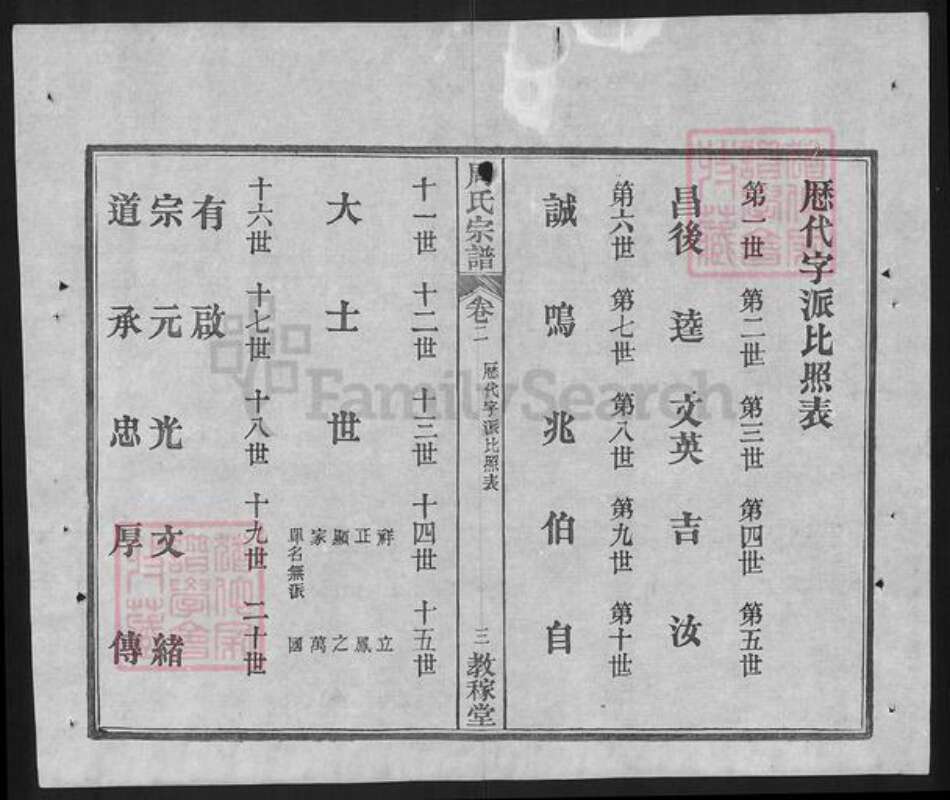 歷代字派比照表
第一世 第二世 第三世 第四世 第五世
昌後 逵 文英 吉 汝
第六世 第七世 第八世 第九世 第十世
誠 鳴 兆 伯 自
周氏宗譜 卷二 歷代字派比照表 三 教稼堂
十一世 十二世 十三世 十四世 十五世
祥 立
正 鳳
顯 之
家 萬
單名無派 國
大 士 世
十六世 十七世 十八世 十九世 二十世
有 啟
宗 元 光 文 緒
道 承 忠 厚 傳
FamilySearch